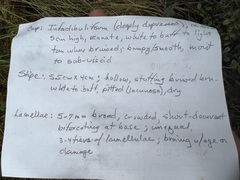 Cap: Infundibuliform (deeply depressed),
9cm high, zonate, white to buff to light
tan when bruised; bumpy/smooth, moist
to sub-viscid
Stipe: 5.5cm x 4cm; hollow, stuffing bruised brn.
white to buff, pitted (lacunose), dry
Lamellae: 5-7mm broad, crowded, short-decurrent
bifurcating at base; unequal,
3-4 tiers of lamellulae; browning w/age or
damage